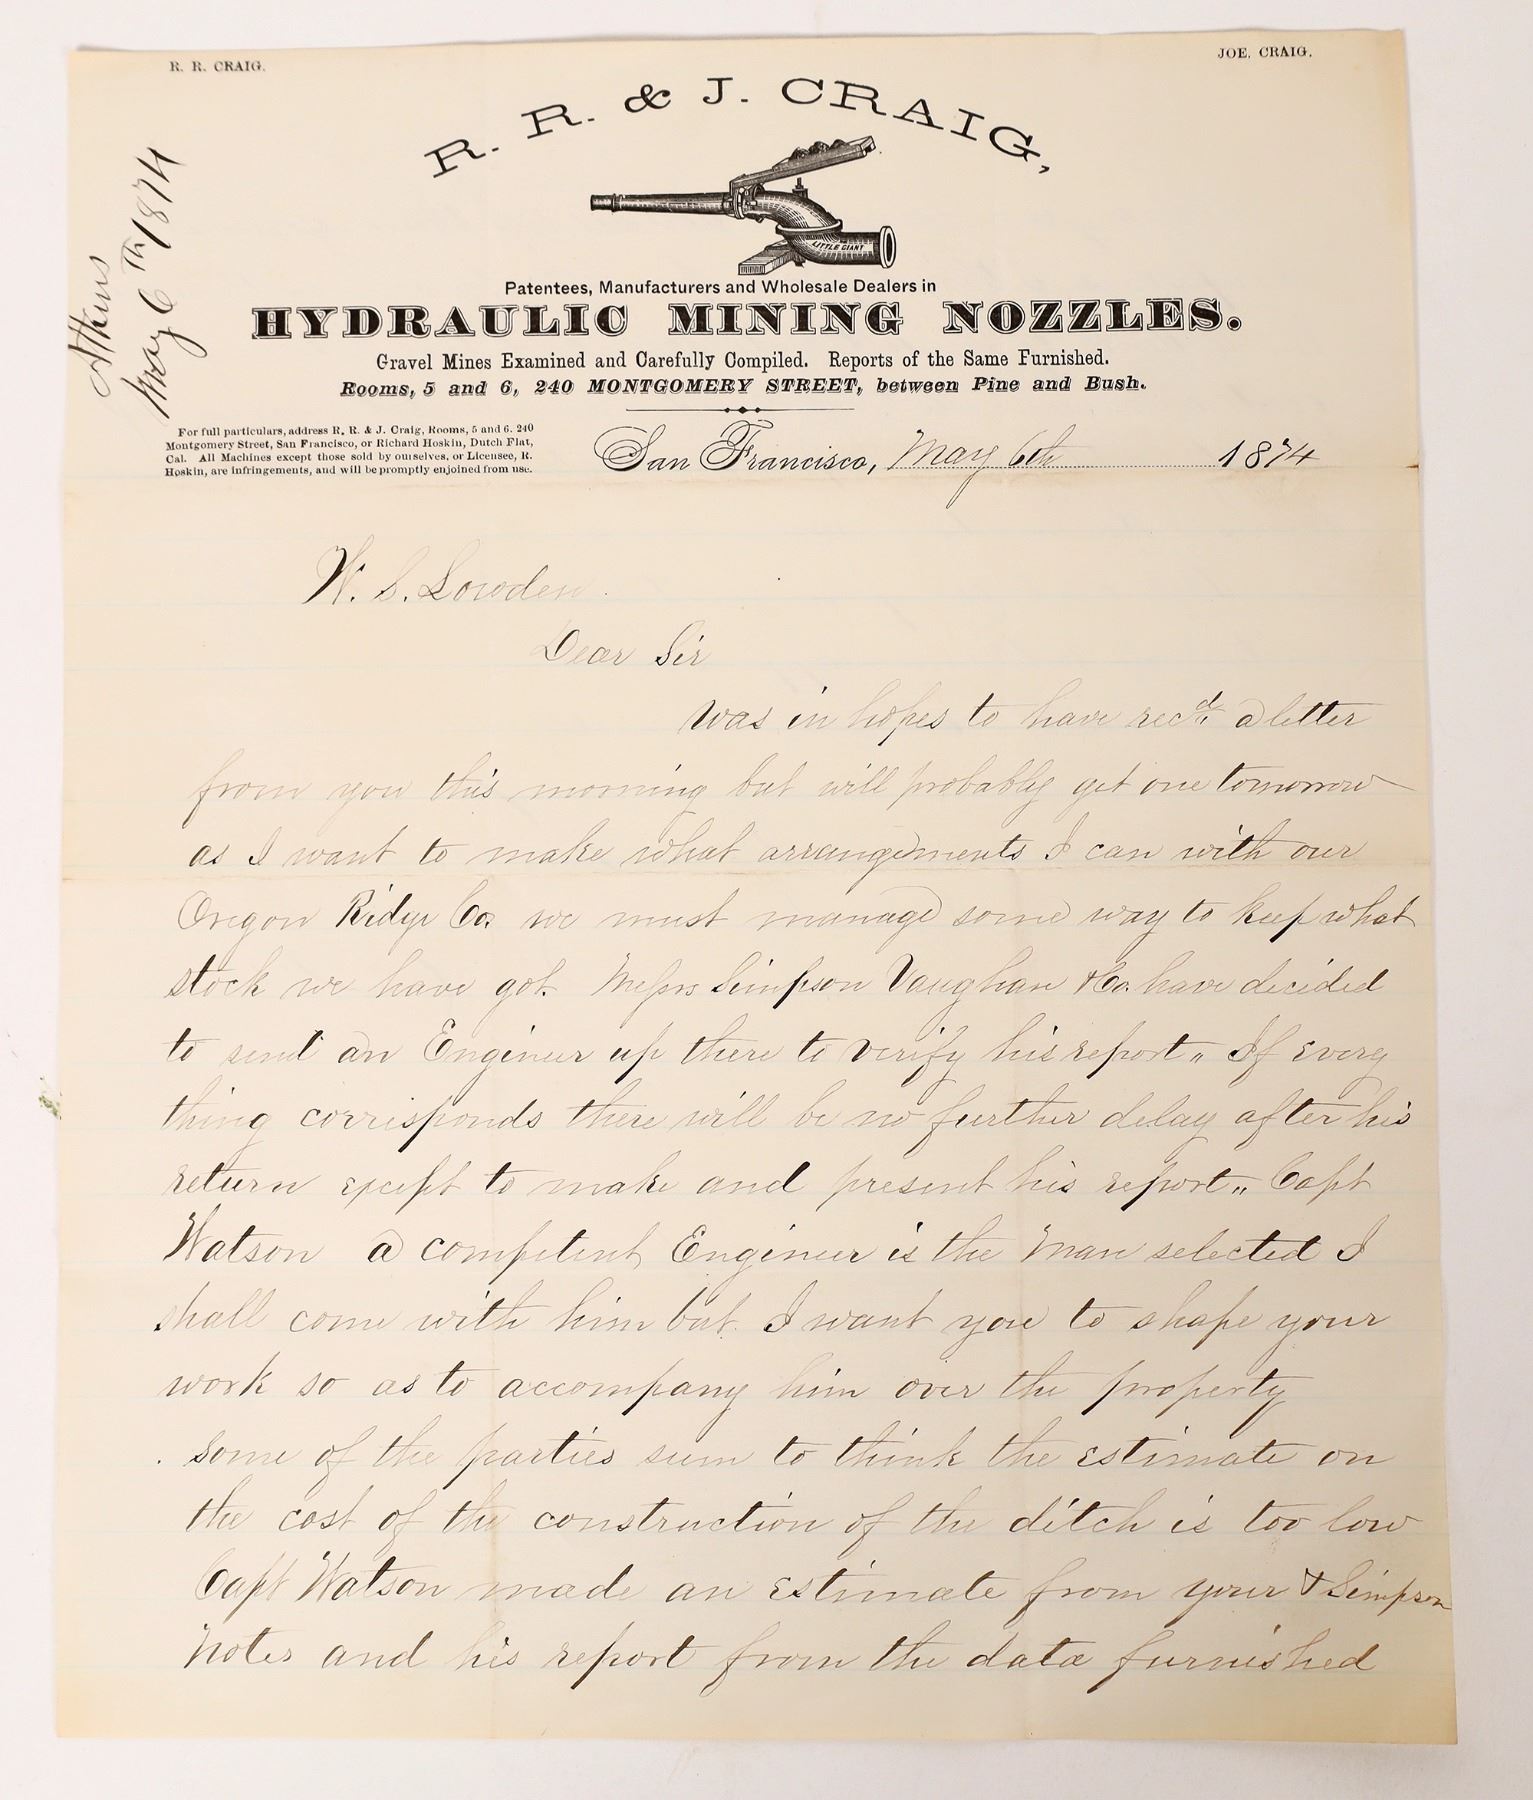 R. R. CRAIG.
JOE. CRAIG.
R. R. & J. CRAIG,
LITTLE GIANT
Patentees, Manufacturers and Wholesale Dealers in
HYDRAULIC MINING NOZZLES.
Gravel Mines Examined and Carefully Compiled. Reports of the Same Furnished.
Rooms, 5 and 6, 240 MONTGOMERY STREET, between Pine and Bush.
Atkins
May 6th 1874
For full particulars, address R. R. & J. Craig, Rooms, 5 and 6. 240
Montgomery Street, San Francisco, or Richard Hoskin, Dutch Flat,
Cal. All Machines except those sold by ourselves, or Licensee, R.
Hoskin, are infringements, and will be promptly enjoined from use.
San Francisco, May 6th 1874
W. S. Lowden.
Dear Sir
Was in hopes to have recd. a letter
from you this morning but will probably get one tomorrow
as I want to make what arrangements I can with our
Oregon Ridge Co. we must manage some way to keep what
stock we have got. Messrs Simpson Vaughan & Co. have decided
to send an Engineer up there to verify his report„ If every
thing corresponds there will be no further delay after his
return except to make and present his report„ Capt
Watson a competent Engineer is the man selected I
shall come with him but I want you to shape your
work so as to accompany him over the property
some of the parties seem to think the estimate on
the cost of the construction of the ditch is too low
Capt Watson made an estimate from your & Simpson
Notes and his report from the data furnished